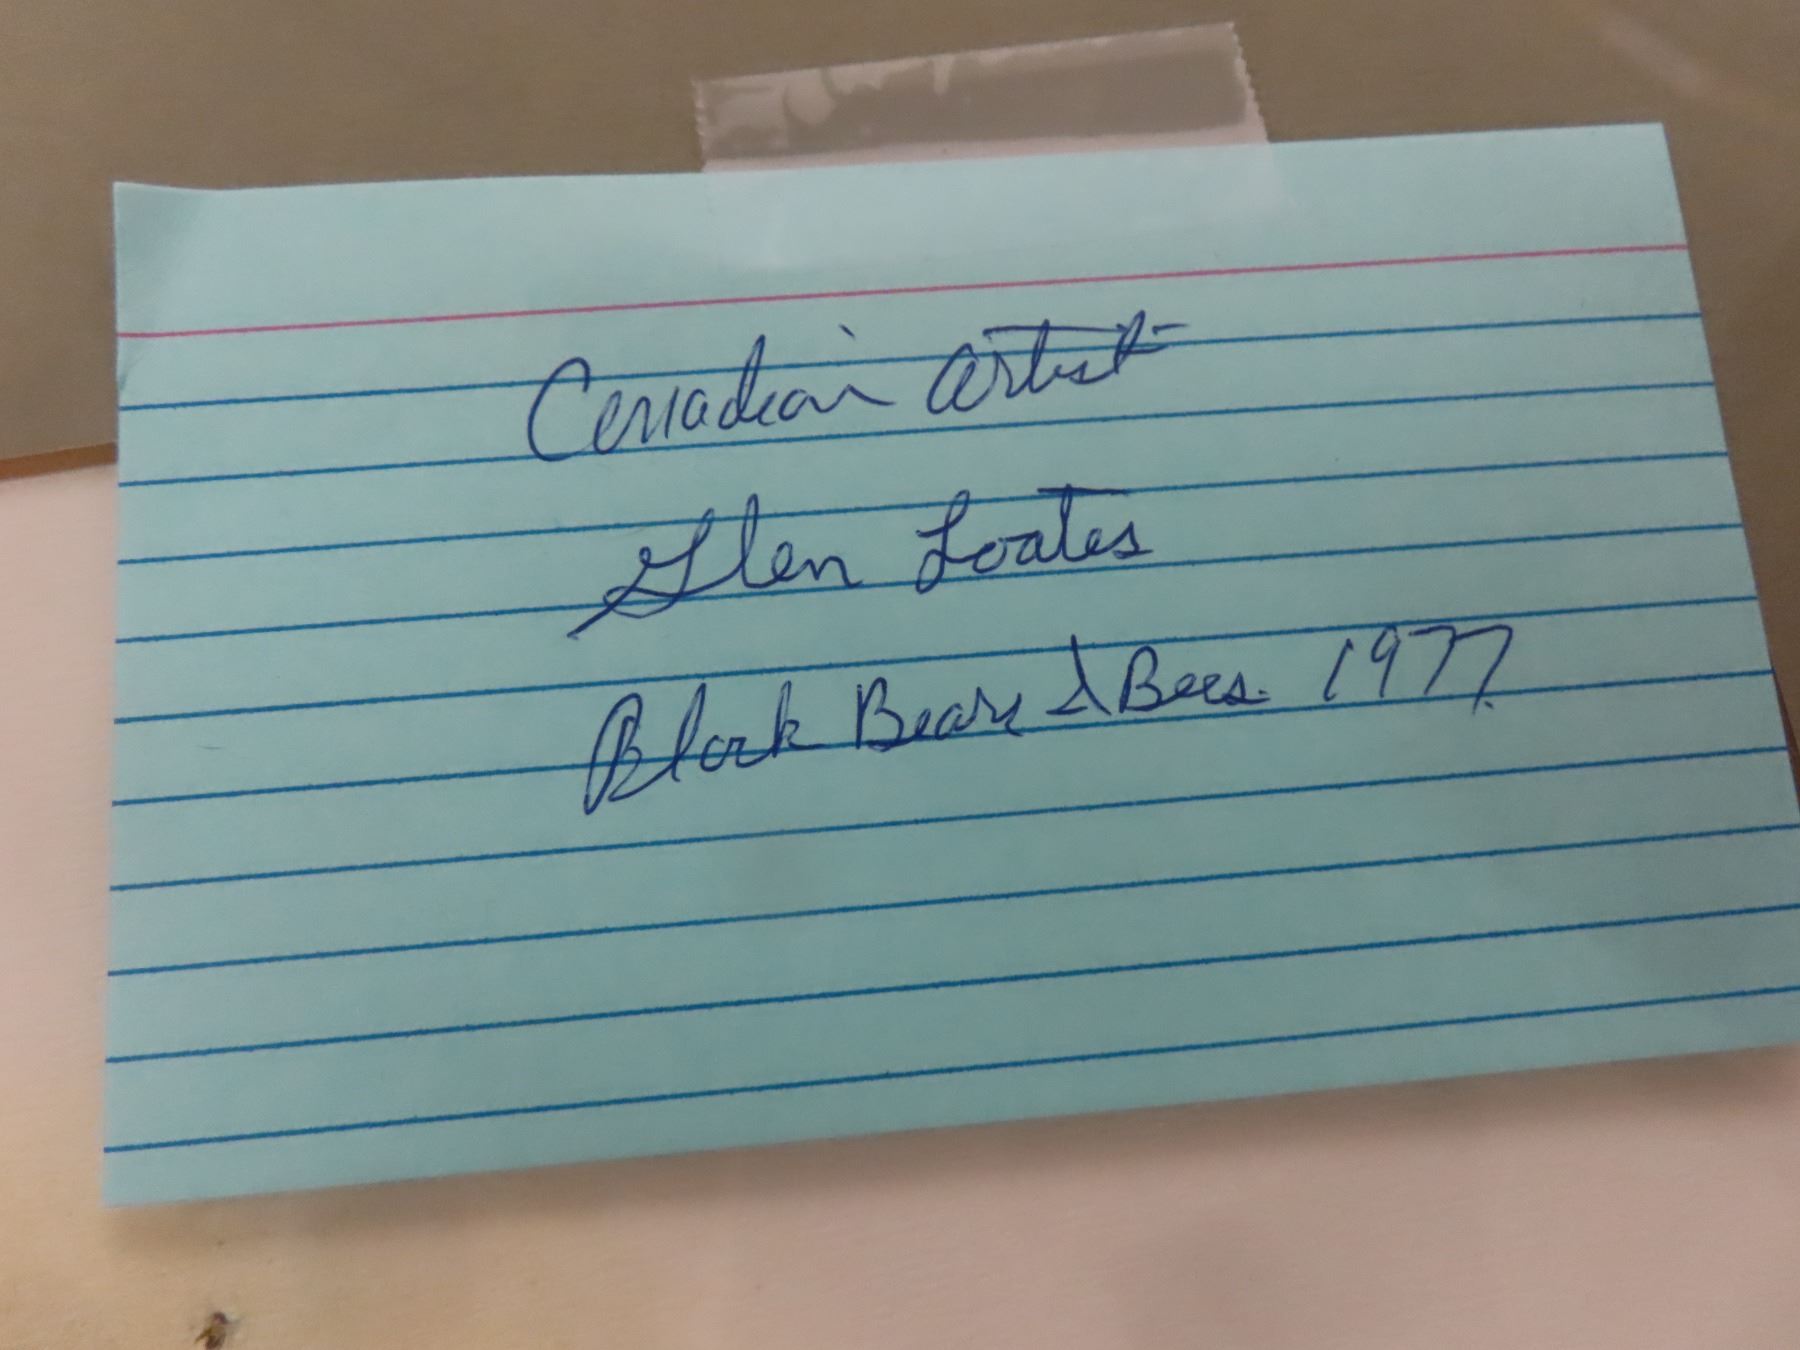 Canadian Artist
Glen Loates
Black Bears & Bees. 1977.